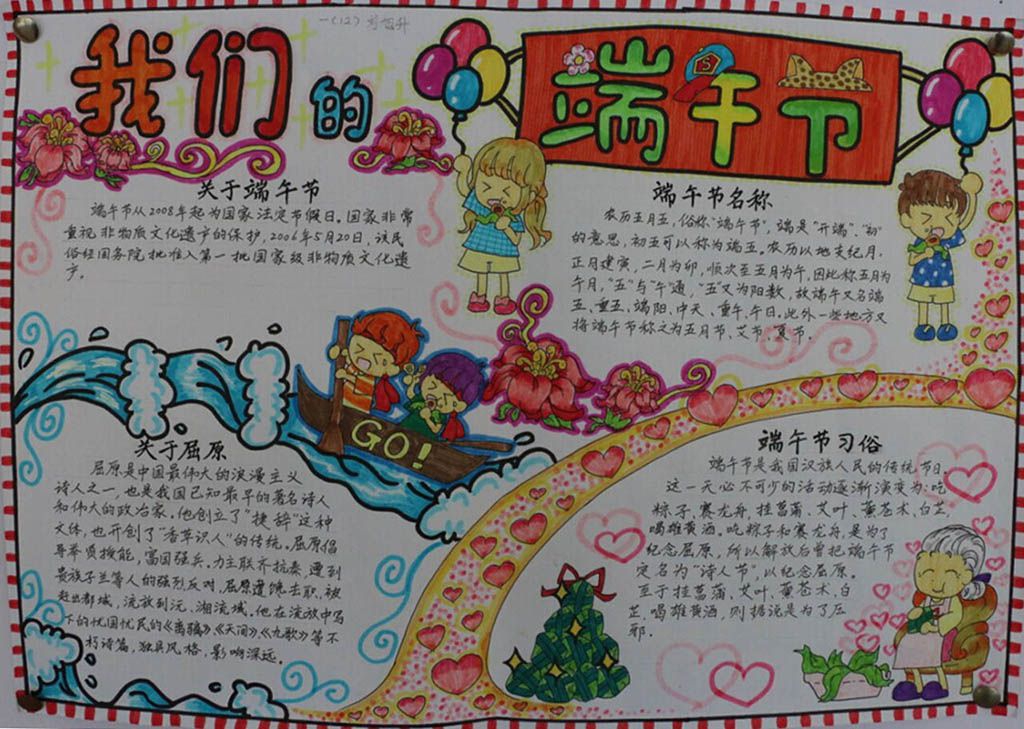 一(12)
我们的
端午节
S
关于端午节
端午节从2008年起为国家法定节假日。国家非常
重视非物质文化遗产的保护,2006年5月20日,该民
俗经国务院批准入第一批国家级非物质文化遗
产。
端午节名称
农历五月五,俗称"端午节",端是"开端"、"初"
的意思,初五可以称为端五。农历以地支纪月,
正月建寅,二月为卯,顺次至五月为午,因此称五月为
午月,"五"与"午"通,"五"又为阳数,故端午又名端
五、重五、端阳、中天、重午、午日。此外一些地方又
将端午节称之为五月节、艾节、夏节。
GO!
关于屈原
屈原是中国最伟大的浪漫主义
诗人之一,也是我国已知最早的著名诗人
和伟大的政治家。他创立了"楚辞"这种
文体,也开创了"香草识人"的传统。屈原倡
导举贤授能,富国强兵,力主联齐抗秦,遭到
贵族子兰等人的强烈反对,屈原遭馋去职,被
赶出都城,流放到沅、湘流域。他在流放中写
下的忧国忧民的《离骚》《天问》《九歌》等不
朽诗篇,独具风格,影响深远。
端午节习俗
端午节是我国汉族人民的传统节日。
这一天必不可少的活动逐渐演变为:吃
粽子、赛龙舟、挂菖蒲、艾叶、薰苍术、白芷、
喝雄黄酒。吃粽子和赛龙舟,是为了
纪念屈原,所以解放后曾把端午节
定名为"诗人节",以纪念屈原。
至于挂菖蒲、艾叶、薰苍术、白
芷、喝雄黄酒,则据说是为了压
邪。